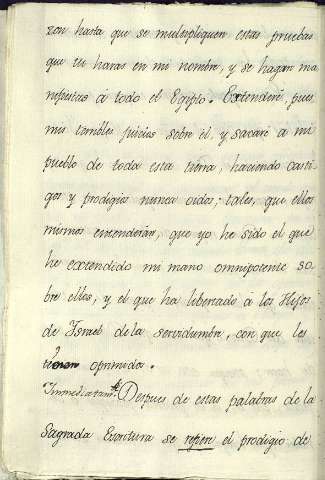 zon hasta que se multipliquen estas pruebas
que tu haras en mi nombre, y se hagan ma
nifiestas à todo el Egipto. Extenderé, pues
mis terribles juicios sobre él, y sacaré a mi
pueblo de toda esta tierra, haciendo casti
gos y prodigios nunca oidos; tales, que ellos
mismos entenderán, que yo he sido el que
he extendido mi mano omnipotente so
bre ellos, y el que ha libertado à los Hijos
de Israel de la servidumbre, con que les
oprimidos.
Immediatam.te Despues de estas palabras de la
Sagrada Escritura se refiere el prodigio de